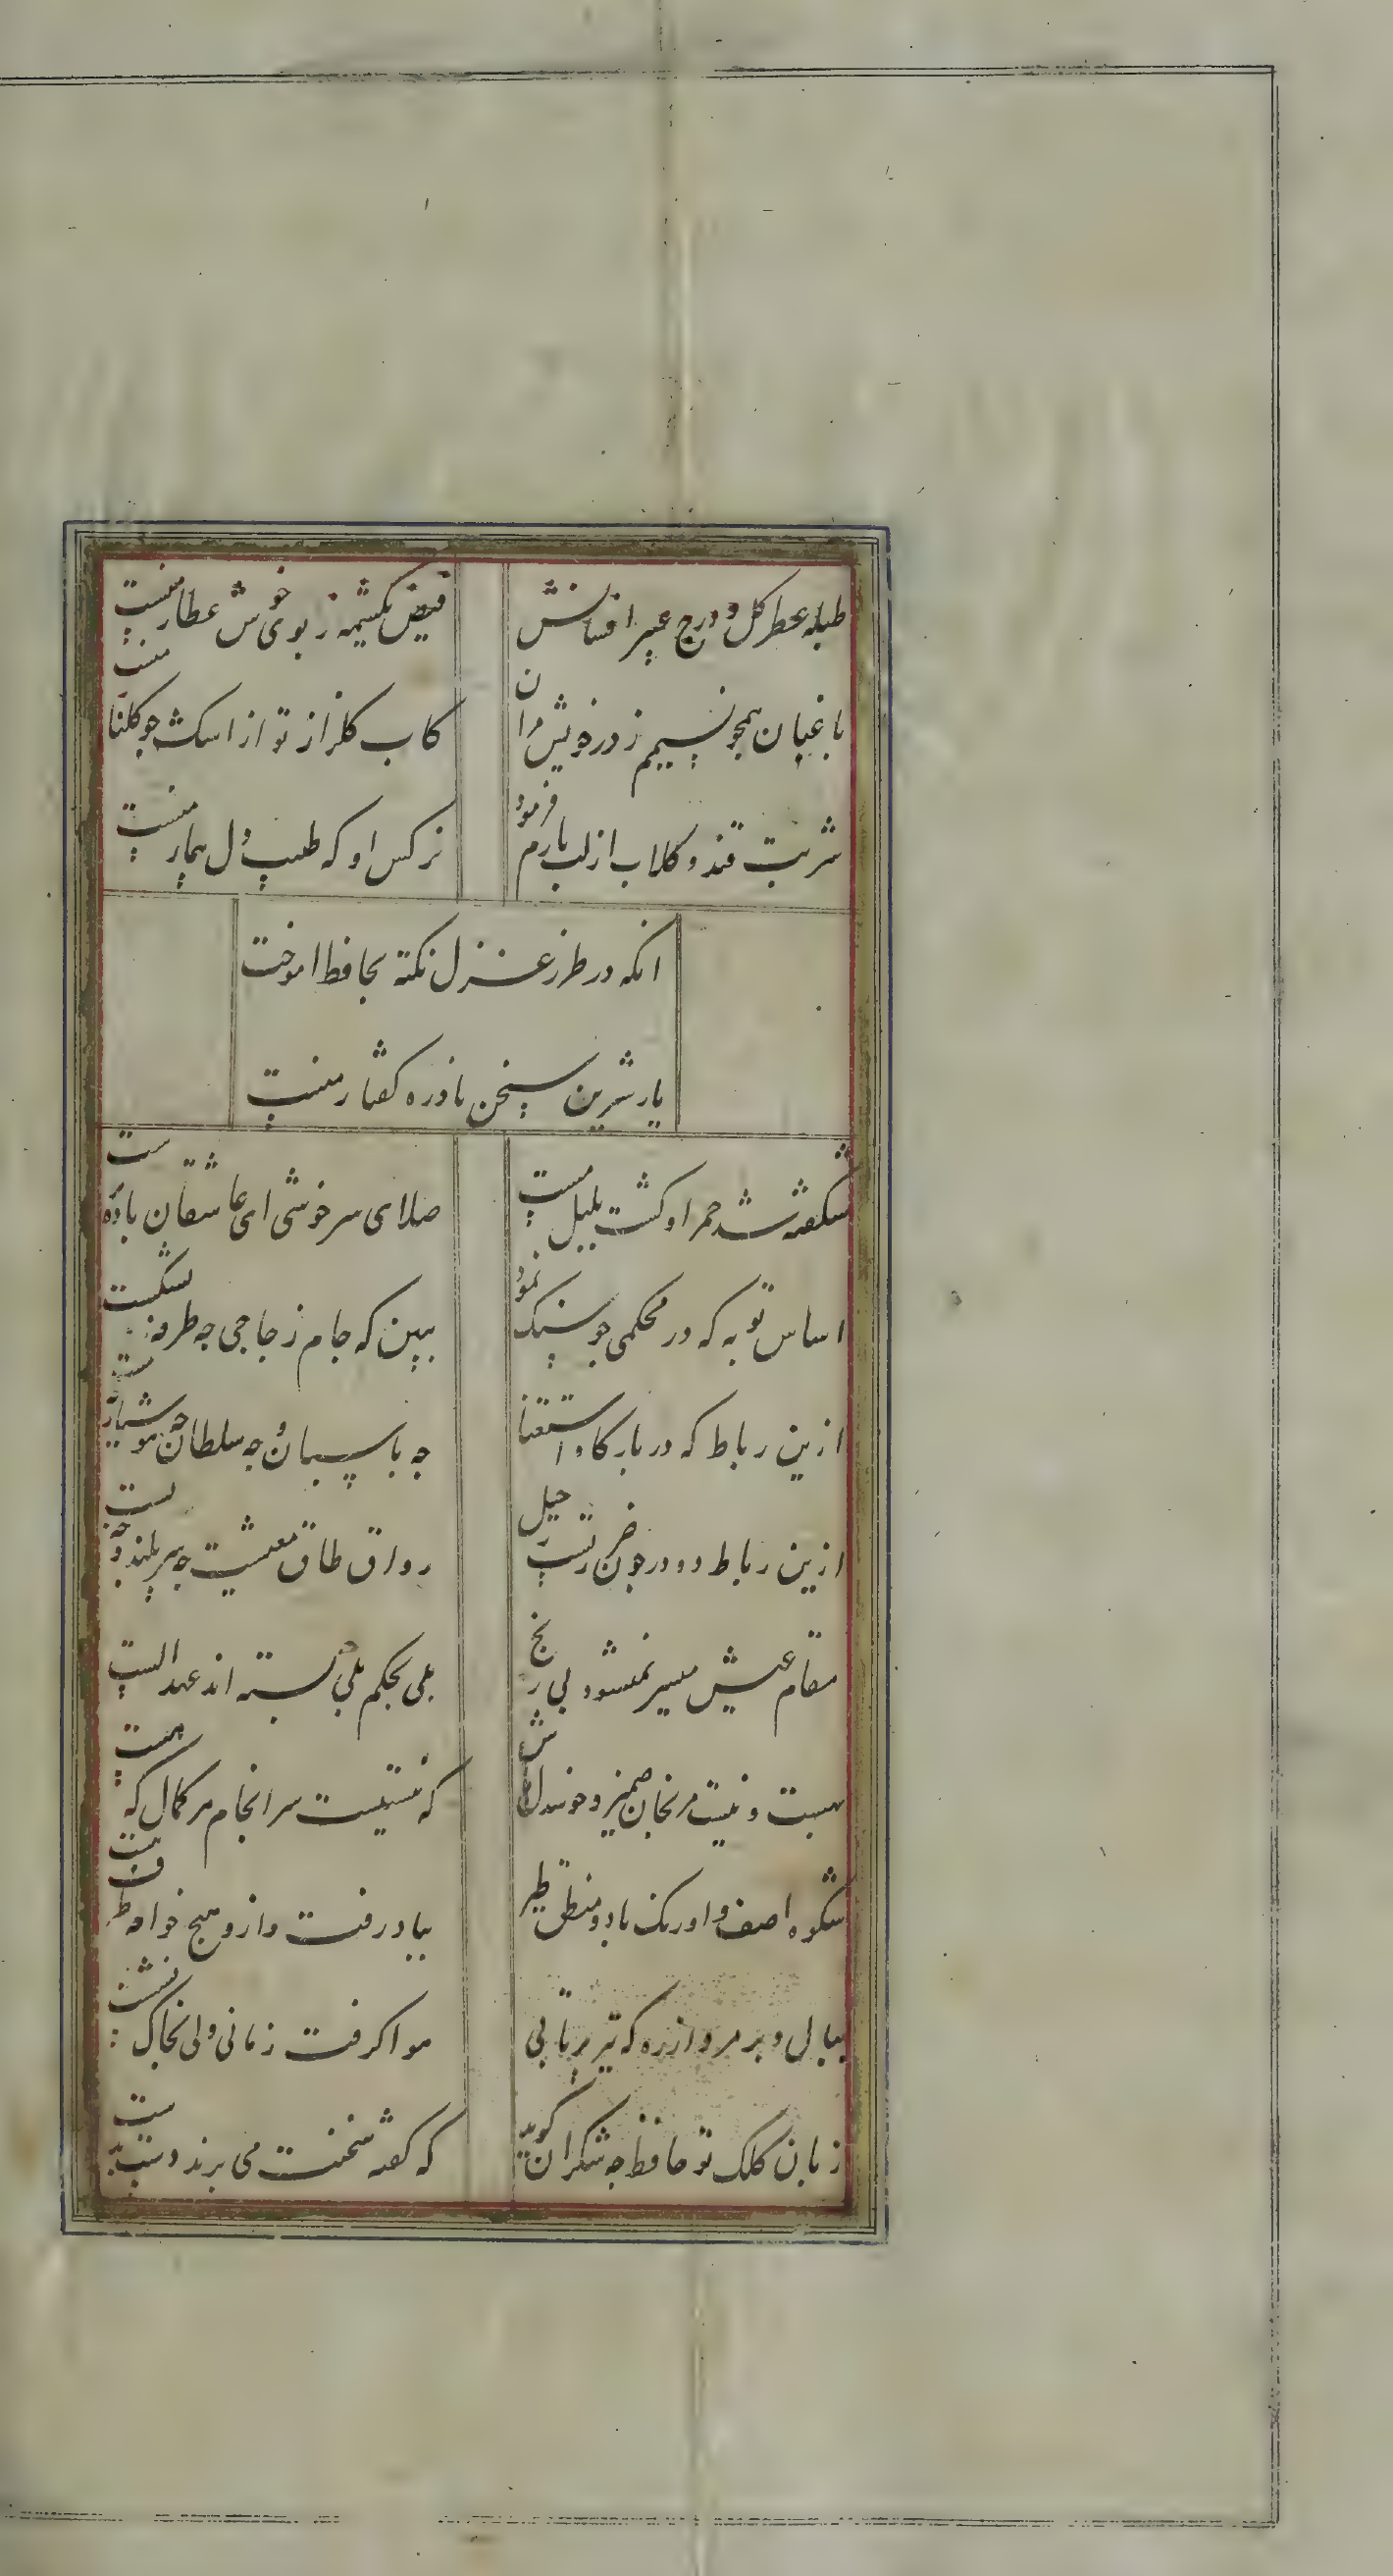 طبله عطر کل و درج عبیر افشانش
فیض یکشمه ز بوی خوش عطار منست
باغبان همچو نسیمم ز در خویش مران
کاب کلزار تو از اشک چو کلنار منست
شربت قند و کلاب از لب یارم فرمود
نرکس او که طبیب دل بیمار منست
انکه در طرز غزل نکته بحافظ اموخت
یار شیرین سخن نادره کفتار منست
شکفته شد حمرا و کشت بلبل مست
صلای سرخوشی ای عاشقان باده پرست
اساس توبه که در محکمی جو سنک نمود
ببین که جام زجاجی جه طرفه بشکست
ازین رباط که در بارکاه استغنا
جه پاسبان و جه سلطان جه هوشیار جه مست
ازین رباط دو در جون ضرورتست رحیل
رواق طاق معیشت جه سربلند و جه پست
مقام عیش میسر نمیشود بی رنج
بلی بحکم بلی بسته اند عهد الست
بهست و نیست مرنجان ضمیر و خوشدل باش
که نیستیست سرانجام هر کمال که هست
شکوه اصف و اورنک باد و منطق طیر
بباد رفت و ازو هیچ خواجه طرف نبست
ببال و پر مرو از ره که تیر پرتابی
هوا کرفت زمانی ولی بخاک نشست
زبان کلک تو حافظ چه شکر ان کوید
که کفته سخنت می برند دست بدست